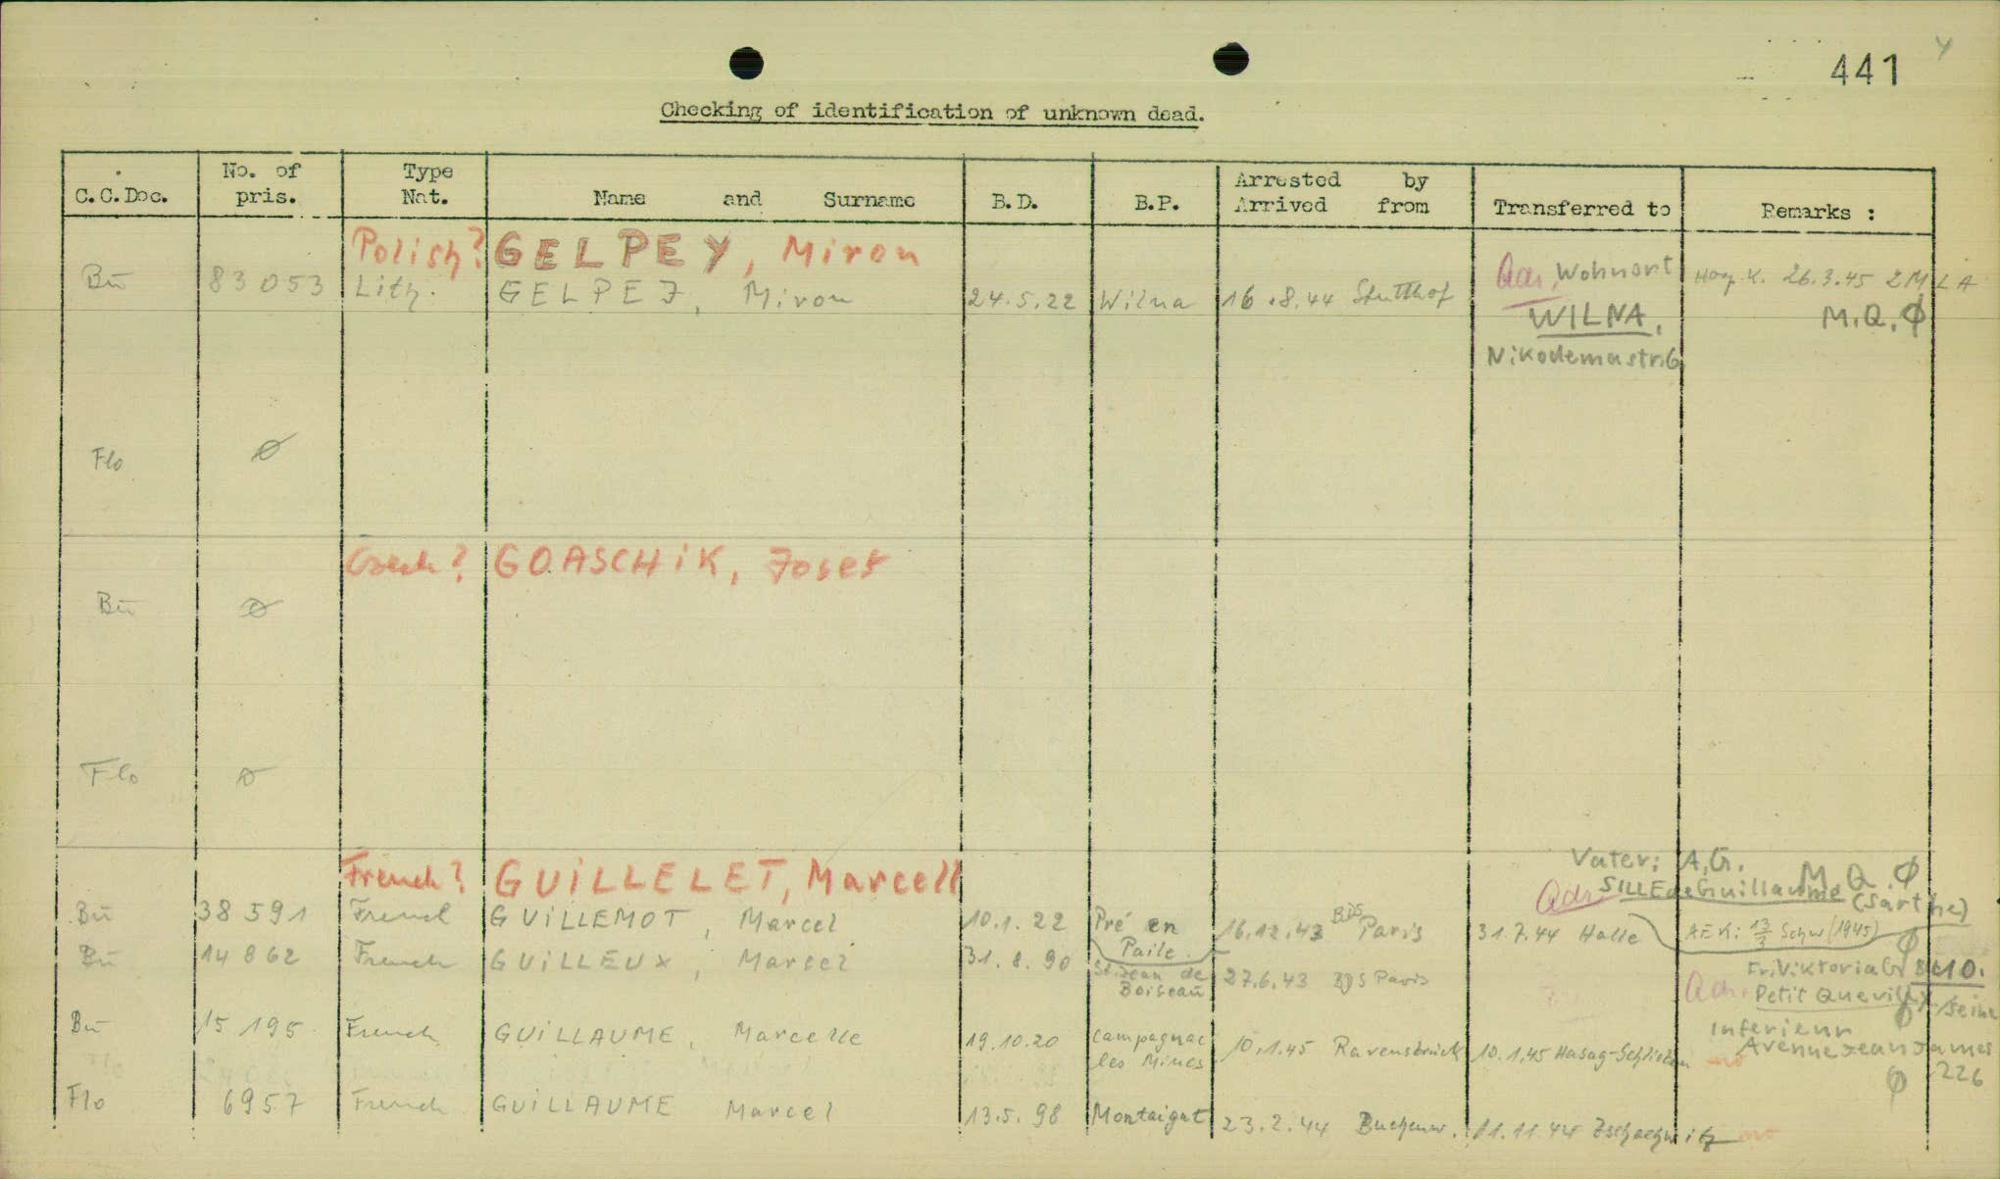 441
Checking of identification of unknown dead.
C.C.Doc. No. of pris. Type Nat. Name and Surname B.D. B.P. Arrested by Arrived from Transferred to Remarks :
Polish? GELPEY, Miron
Bu 83053 Lith. GELPEJ, Miron 24.5.22 Wilna 16.8.44 Stutthof Adr. Wohnort 26.3.45
WILNA, M.Q. Ø
Flo Ø
Czech? GOASCHIK, Josef
Bu Ø
Flo Ø
French? GUILLELET, Marcell
Vater: A.G. M.Q. Ø
Adr. SILLE de Guillaume (Sarthe)
Bu 38591 French GUILLEMOT, Marcel 10.1.22 Pré en Paile 16.12.43 BdS Paris 31.7.44 Halle
Bu 14862 French GUILLEUX, Marcel 31.8.90 St. Jean de Boiseau 27.6.43 BdS Paris
Adr. Petit Quevilly / Seine
Inferieur
Avenue Jean Jaures
226
Bu 15195 French GUILLAUME, Marcelle 19.10.20 Campagnac les Mines 10.1.45 Ravensbrück 10.1.45 Hasag-Schlieben
Flo 6957 French GUILLAUME Marcel 13.5.98 Montaigut 23.2.44 Buchenw. 11.11.44 Zschachwitz